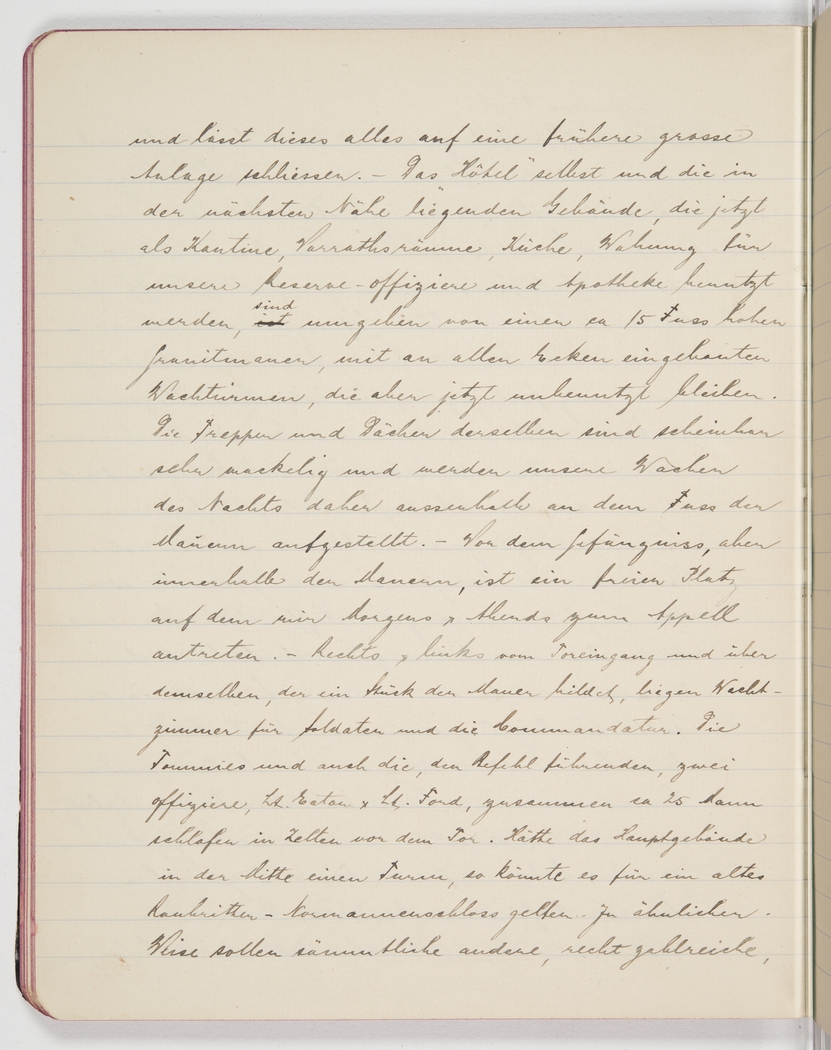 und lässt dieses alles auf eine frühere grosse
Anlage schliessen. – Das Hôtel" selbst und die in
der nächsten Nähe liegenden Gebäude, die jetzt
als Kantine, Vorrathsräume, Küche, Wohnung für
unsere Reserve-offiziere und Apotheke benutzt
werden, ist sind umgeben von einen ca 15 Fuss hohen
Granitmauer, mit an allen Ecken eingebauten
Wachtürmen, die aber jetzt unbenutzt bleiben.
Die Treppen und Dächer derselben sind scheinbar
sehr wackelig und werden unsere Wachen
des Nachts daher ausserhalb an dem Fuss der
Mauern aufgestellt. – Vor dem Gefängniss, aber
innerhalb der Mauern, ist ein freier Platz
auf dem wir Morgens & Abends zum Appell
antreten. – Rechts & links vom Toreingang und über
demselben, der ein Stück der Mauer bildet, liegen Wacht-
zimmer für Soldaten und die Commandatur. Die
Tommies und auch die, den Befehl führenden, zwei
offiziere, Lt. Eaton & Lt. Ford, zusammen ca 25 Mann
schlafen in Zelten vor dem Tor. Hätte das Hauptgebäude
in der Mitte einen Turm, so könnte es für ein altes
Raubritter-Normannenschloss gelten. In ähnlicher
Weise sollen sämmtliche andere, recht zahlreiche,